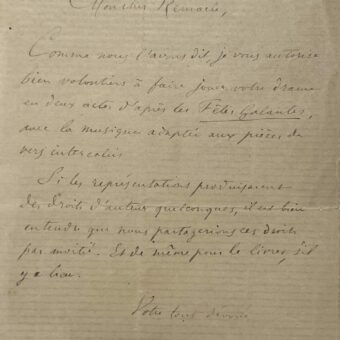 Mon cher Rémacle,
Comme nous l'avons dit, je vous autorise
bien volontiers à faire jouer votre drame
en deux actes d'après les Fêtes Galantes,
avec la musique adaptée aux pièces de
vers intercalés
Si les représentations produisaient
des droits d'auteur quelconques, il est bien
entendu que nous partagerions ces droits
par moitié. Et de même pour le livre, s'il
y a lieu.
Votre tout dévoué